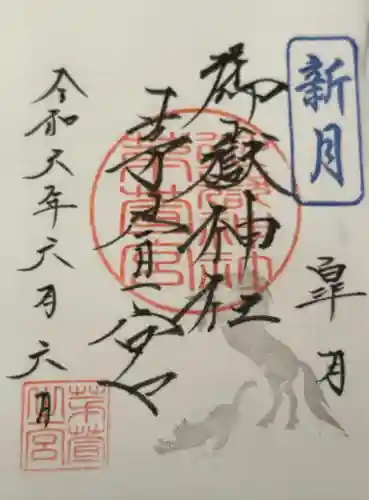 新月
皐月
御嶽神社
茅萱宮
令和六年六月六日